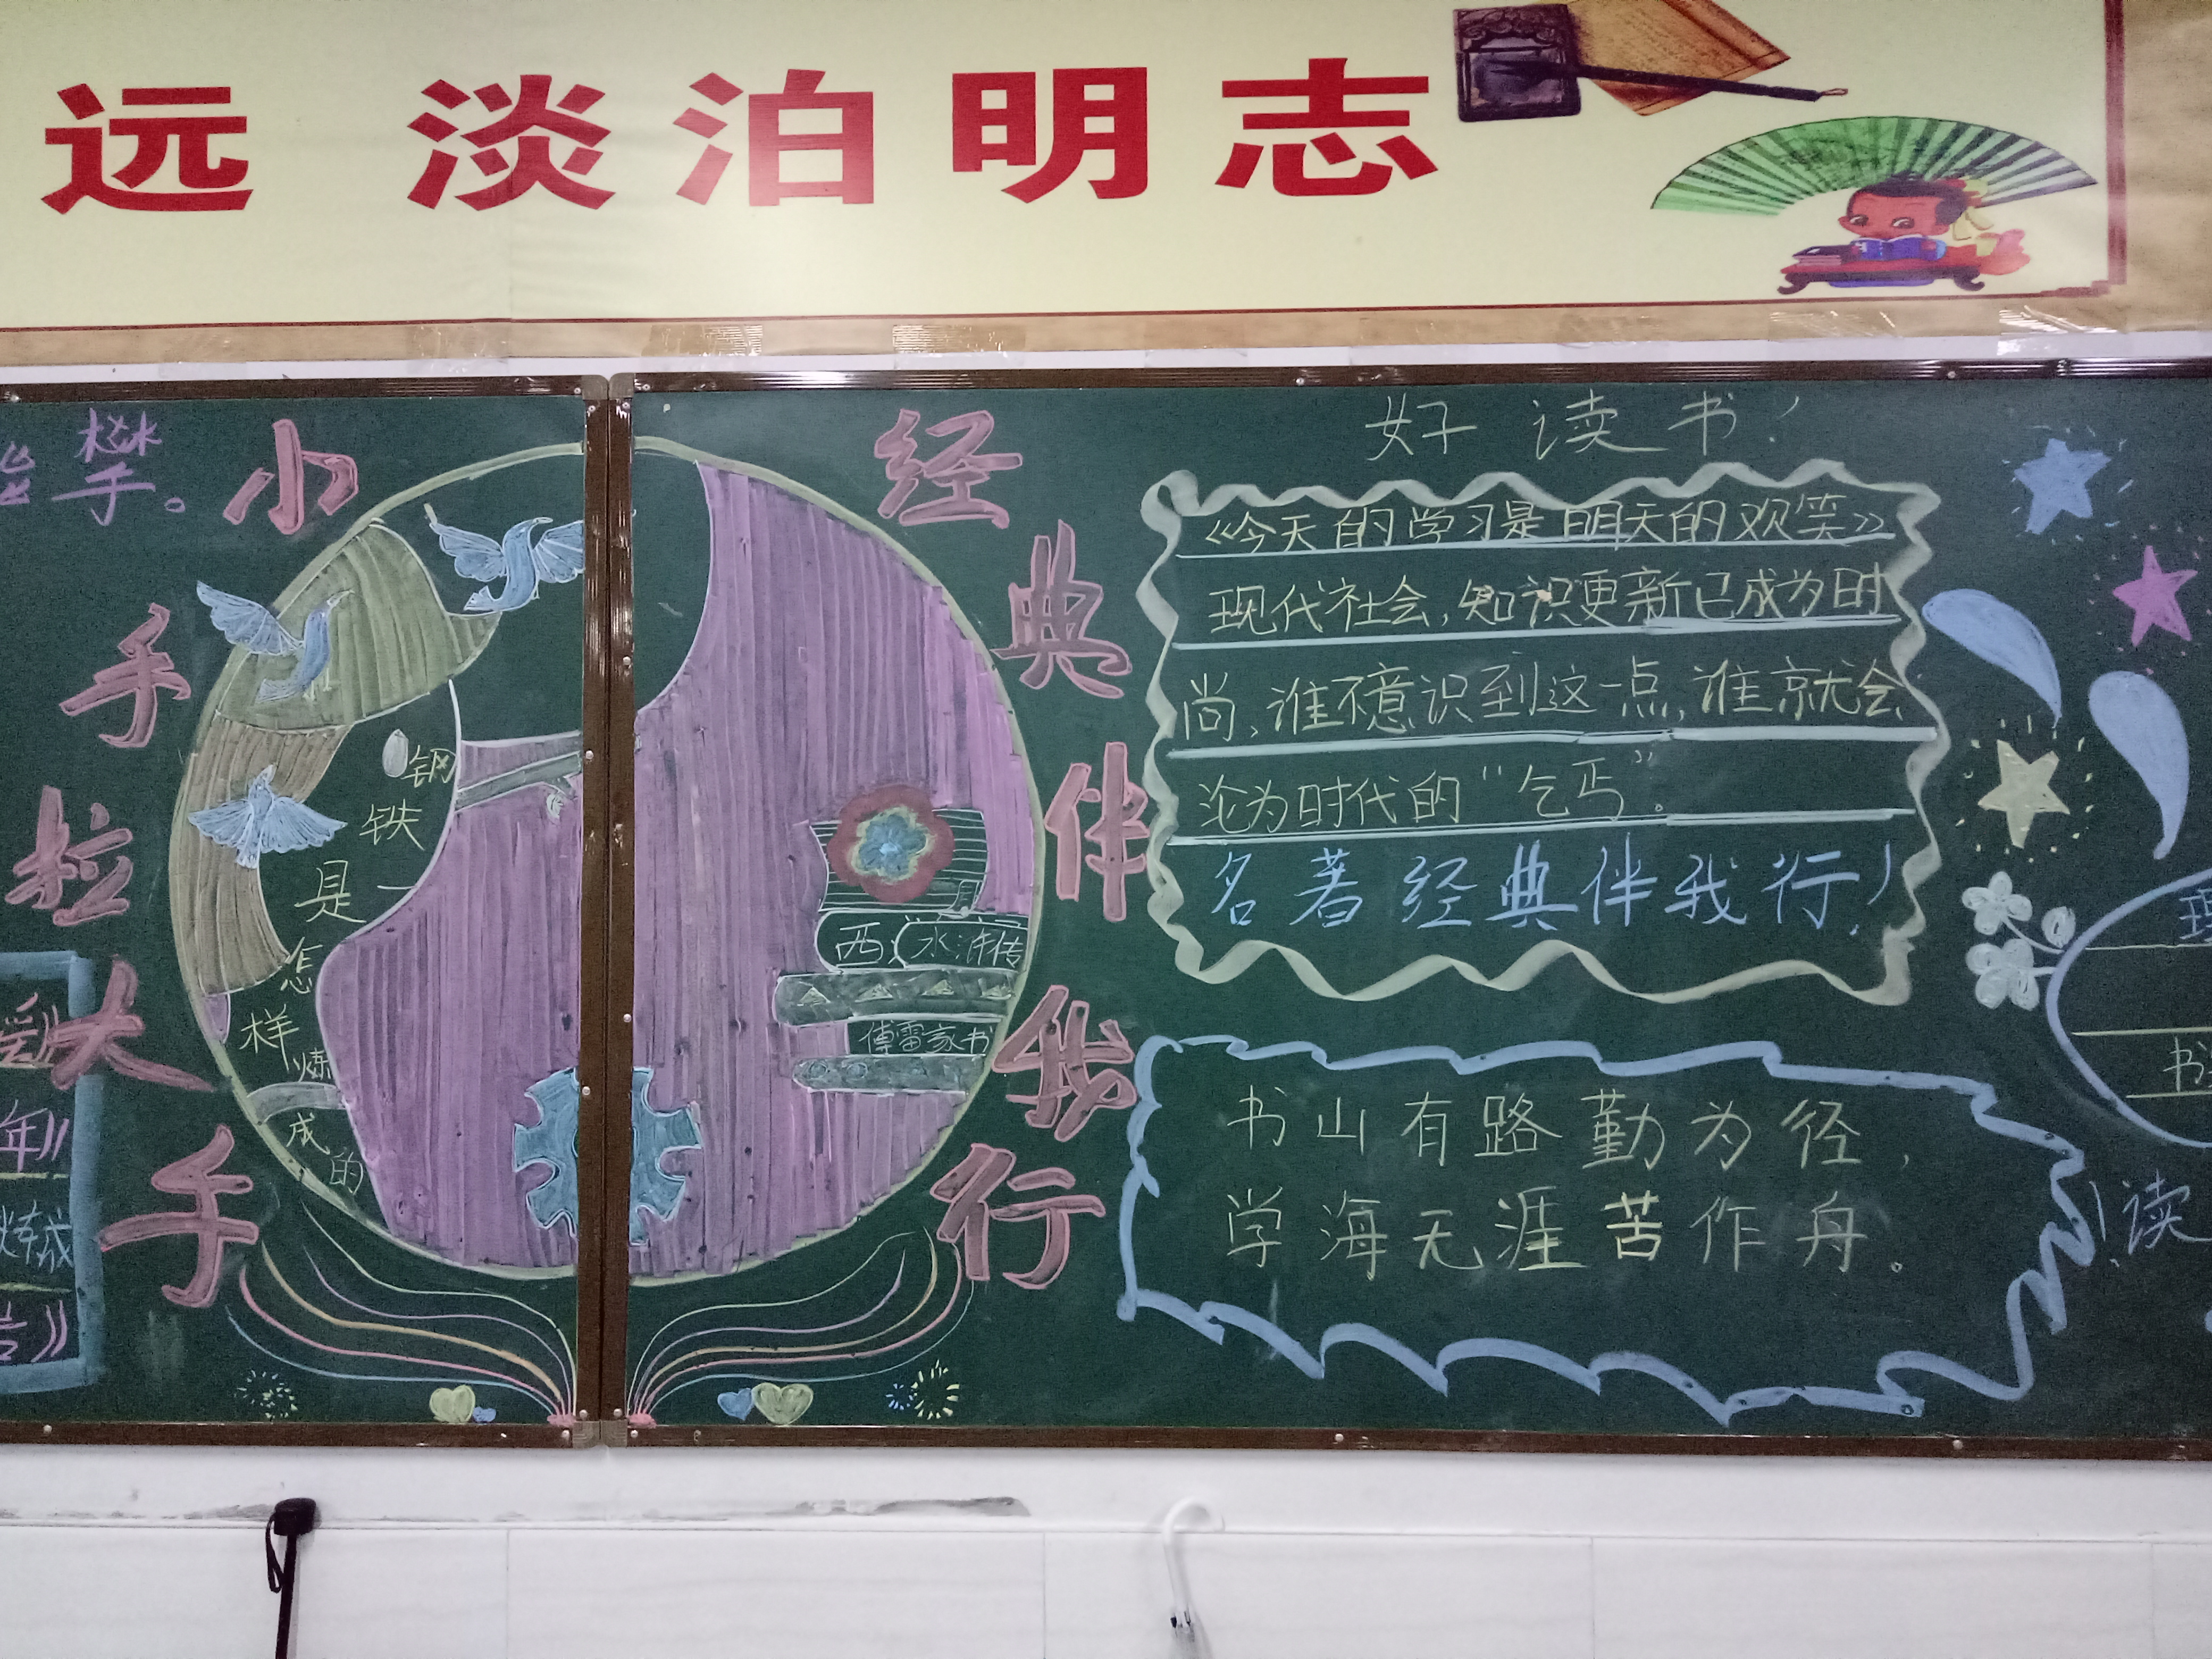 远 淡泊明志
攀。
小手拉大手
经典伴我行
钢铁是怎样炼成的
西
水浒传
傅雷家书
好读书!
《今天的学习是明天的欢笑》
现代社会,知识更新已成为时
尚,谁不意识到这一点,谁就会
沦为时代的“乞丐”。
名著经典伴我行!
书山有路勤为径,
学海无涯苦作舟。
年》
炼成
言》
书
!读